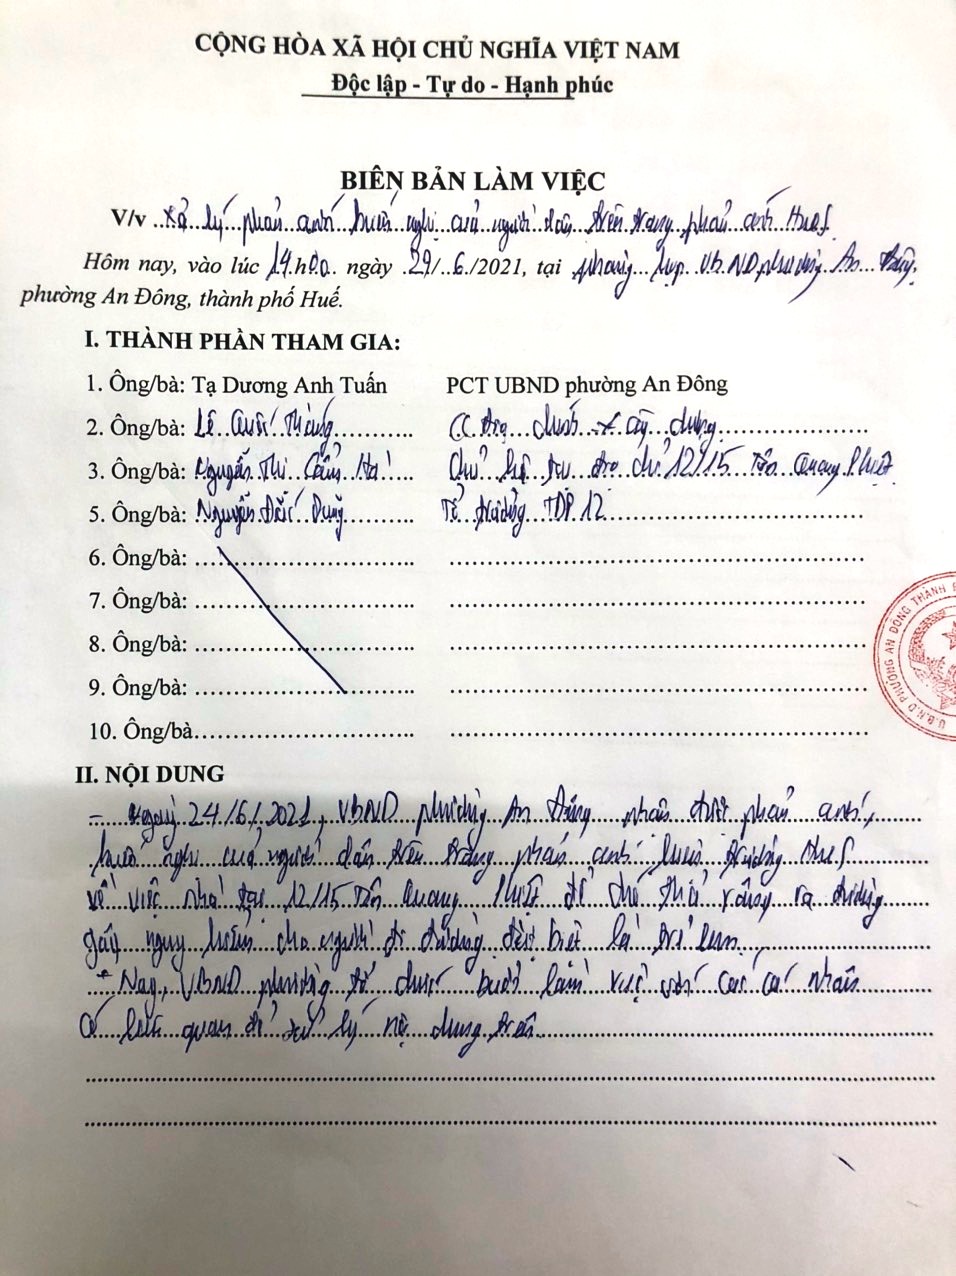 CỘNG HÒA XÃ HỘI CHỦ NGHĨA VIỆT NAM
Độc lập - Tự do - Hạnh phúc
BIÊN BẢN LÀM VIỆC
V/v Xử lý phản ánh kiến nghị của người dân trên trang phản ánh HueS
Hôm nay, vào lúc 14.h00 ngày 29/.6./2021, tại phòng họp UBND phường An Đông,
phường An Đông, thành phố Huế.
I. THÀNH PHẦN THAM GIA:
1. Ông/bà: Tạ Dương Anh Tuấn PCT UBND phường An Đông
2. Ông/bà: Lê Quốc Thắng CC địa chính - xây dựng
3. Ông/bà: Nguyễn Thị Cẩm Hà Chủ hộ tại địa chỉ 12/15 Tôn Quang Phiệt
5. Ông/bà: Nguyễn Đắc Dũng Tổ trưởng TDP 12
6. Ông/bà:
7. Ông/bà:
8. Ông/bà:
9. Ông/bà:
10. Ông/bà
II. NỘI DUNG
- Ngày 24/6/2021, UBND phường An Đông nhận được phản ánh,
kiến nghị của người dân trên trang phản ánh hiện trường HueS
về việc nhà tại 12/15 Tôn Quang Phiệt để chó thả rông ra đường
gây nguy hiểm cho người đi đường đặc biệt là trẻ em.
- Nay, UBND phường tổ chức buổi làm việc với các cá nhân
có liên quan để xử lý nội dung trên
U.B.N.D PHƯỜNG AN ĐÔNG THÀNH